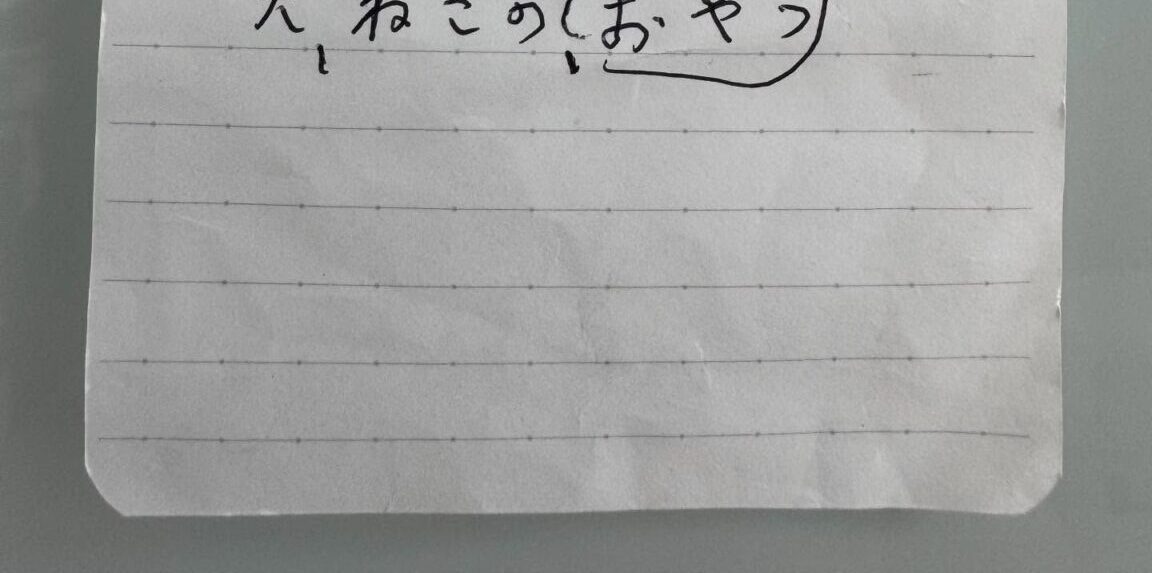 ねこのおやつ